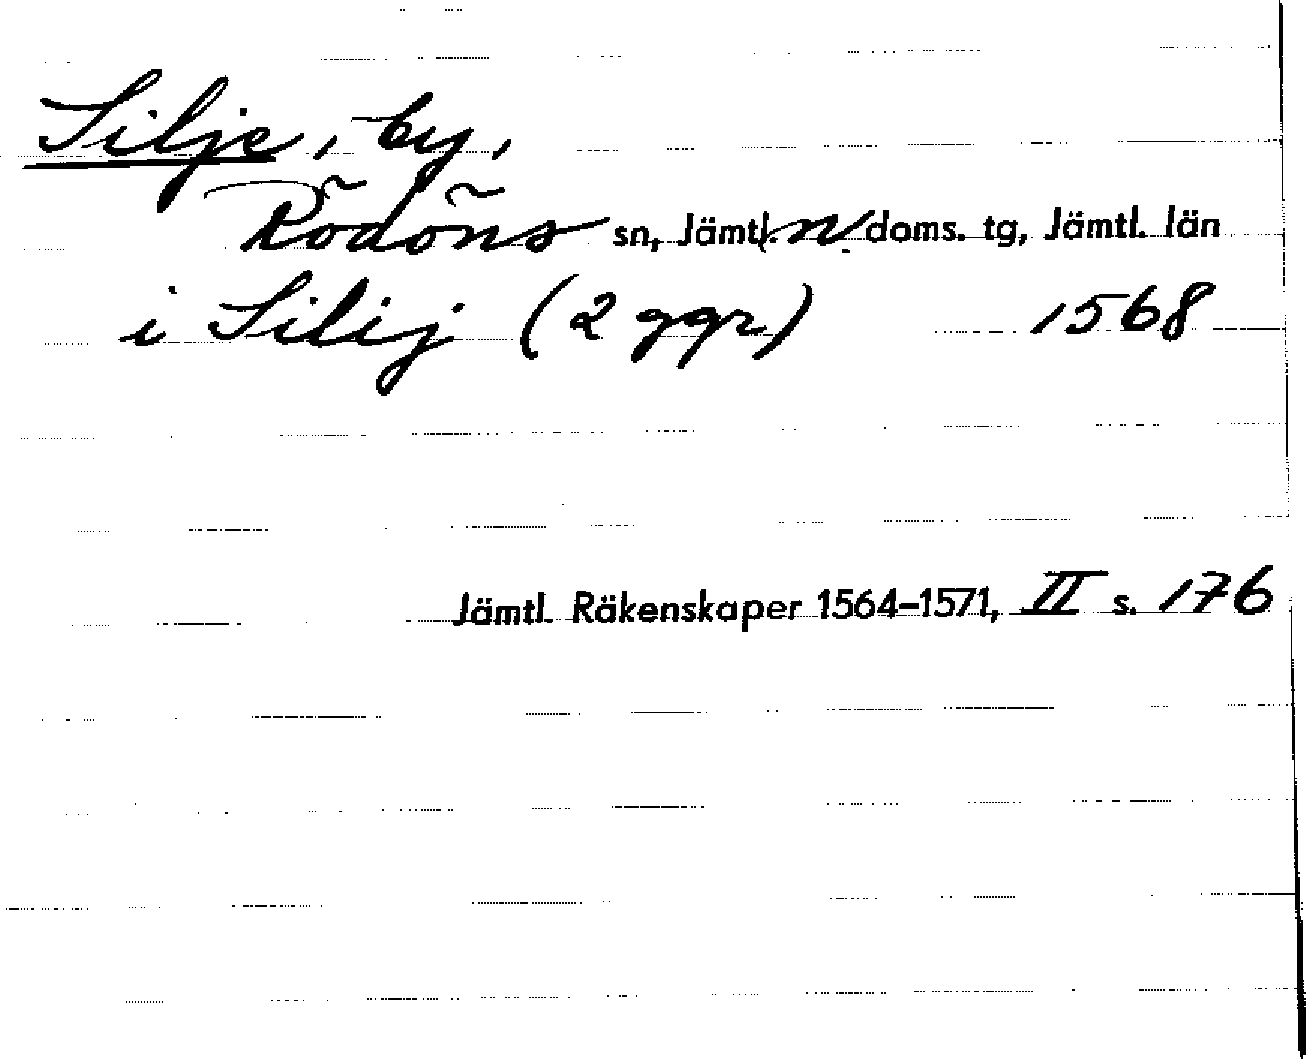 Silje, by,
Rödöns sn, Jämtl. n. doms. tg, Jämtl. län
i Silij (2 ggr) 1568
Jämtl. Räkenskaper 1564–1571, II s. 176